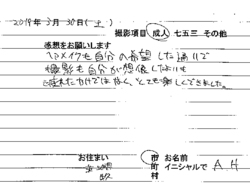 2019年3月30日(土)
撮影項目 成人 七五三 その他
感想をお願いします
ヘアメイクも自分の希望した通りで
撮影も自分が想像してたよりも
けではなく、とても楽しくできました。
お住まい 市町村 お名前 イニシャルで A.H